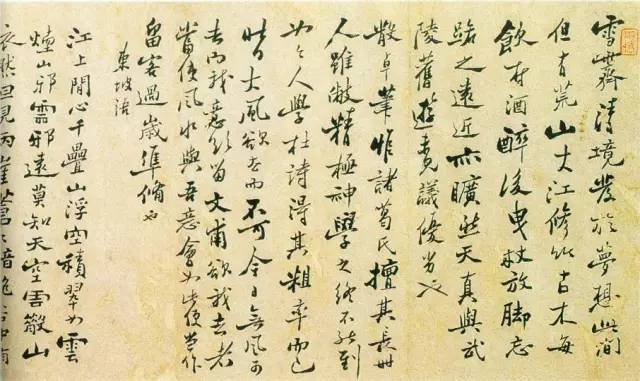 雪齋清境發於夢想此間
但有荒山大江修竹古木每
飲村酒醉後曳杖放脚忘
路之遠近亦曠然天真與武
陵舊遊議優劣也
散卓筆惟諸葛氏擅其長世
人雖敝精極神學之終不能到
人學杜詩得其粗率而已
昔日大風欲去而不可今日無風可
去而我意欲留文甫欲我去者
當使風水與吾意會如此便當作
留客過歲準備也
東坡語
江上閒心千疊山浮空積翠如雲
煙山邪雲邪遠莫知天空雲散山
依然但見兩崖蒼〻暗絕谷中有